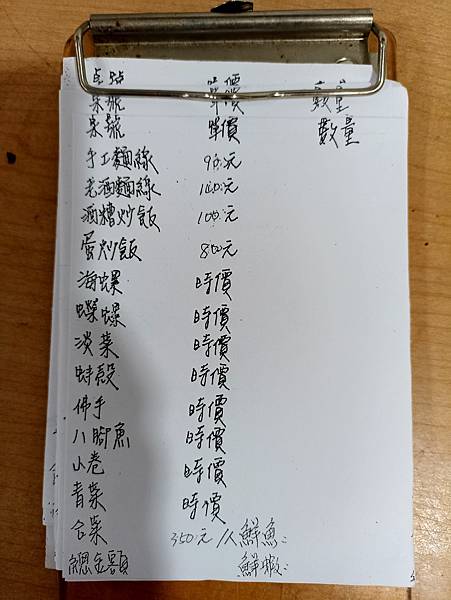 桌號 單價 數量
桌號 單價 數量
手工麵線 90元
老酒麵線 100元
酒糟炒飯 100元
蛋炒飯 80元
海螺 時價
蠑螺 時價
淡菜 時價
蚌殼 時價
佛手 時價
八腳魚 時價
小卷 時價
青菜 時價
合菜 350元/人 鮮魚:
總金額 鮮蝦: